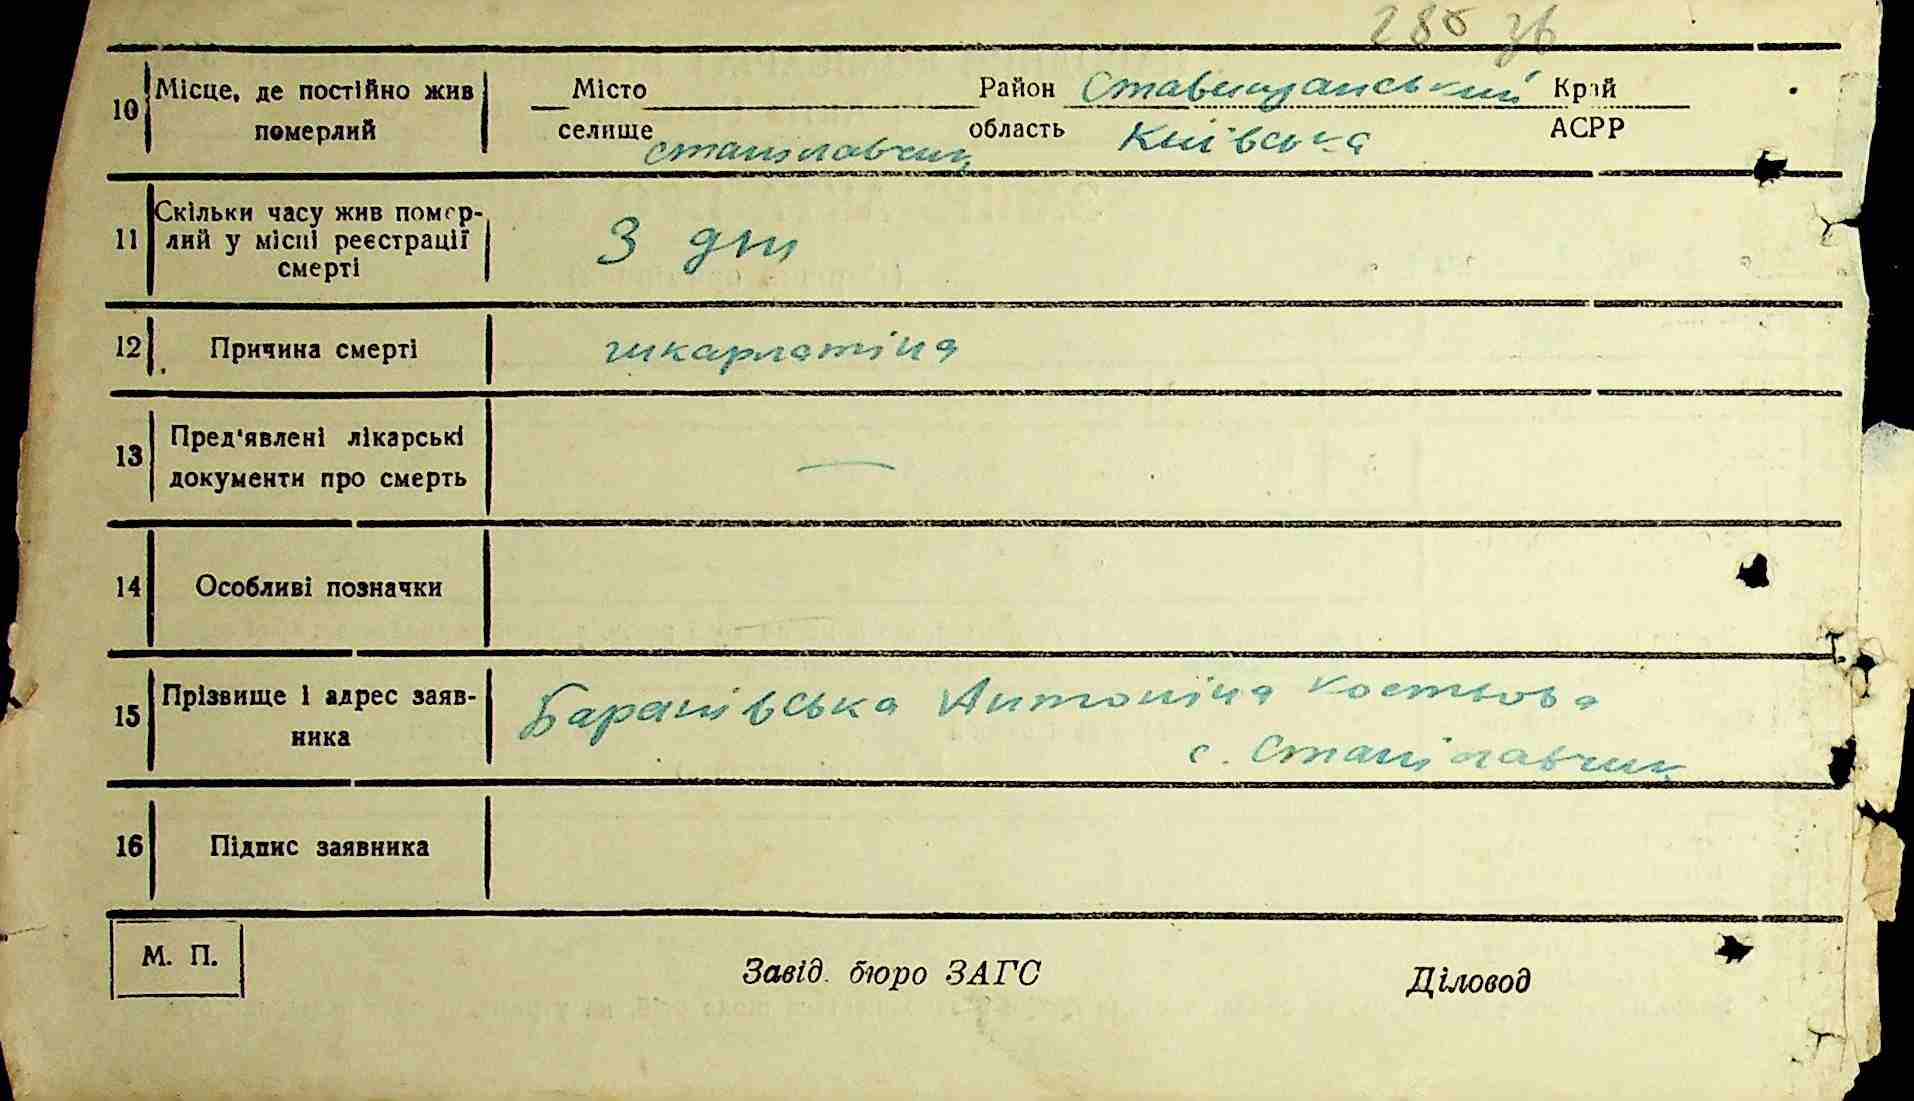 280 зв
10 Місце, де постійно жив Місто Район Ставищанський Край
померлий селище область Київська АСРР
станіславчик
Скільки часу жив помер-
11 лий у місці реєстрації 3 дні
смерті
12 Причина смерті шкарлатіна
Пред'явлені лікарські
13 —
документи про смерть
14 Особливі позначки
15 Прізвище і адрес заяв- Баранівська Антоніна Костьова
ника с. Станіславчик
16 Підпис заявника
М. П. Завід. бюро ЗАГС Діловод